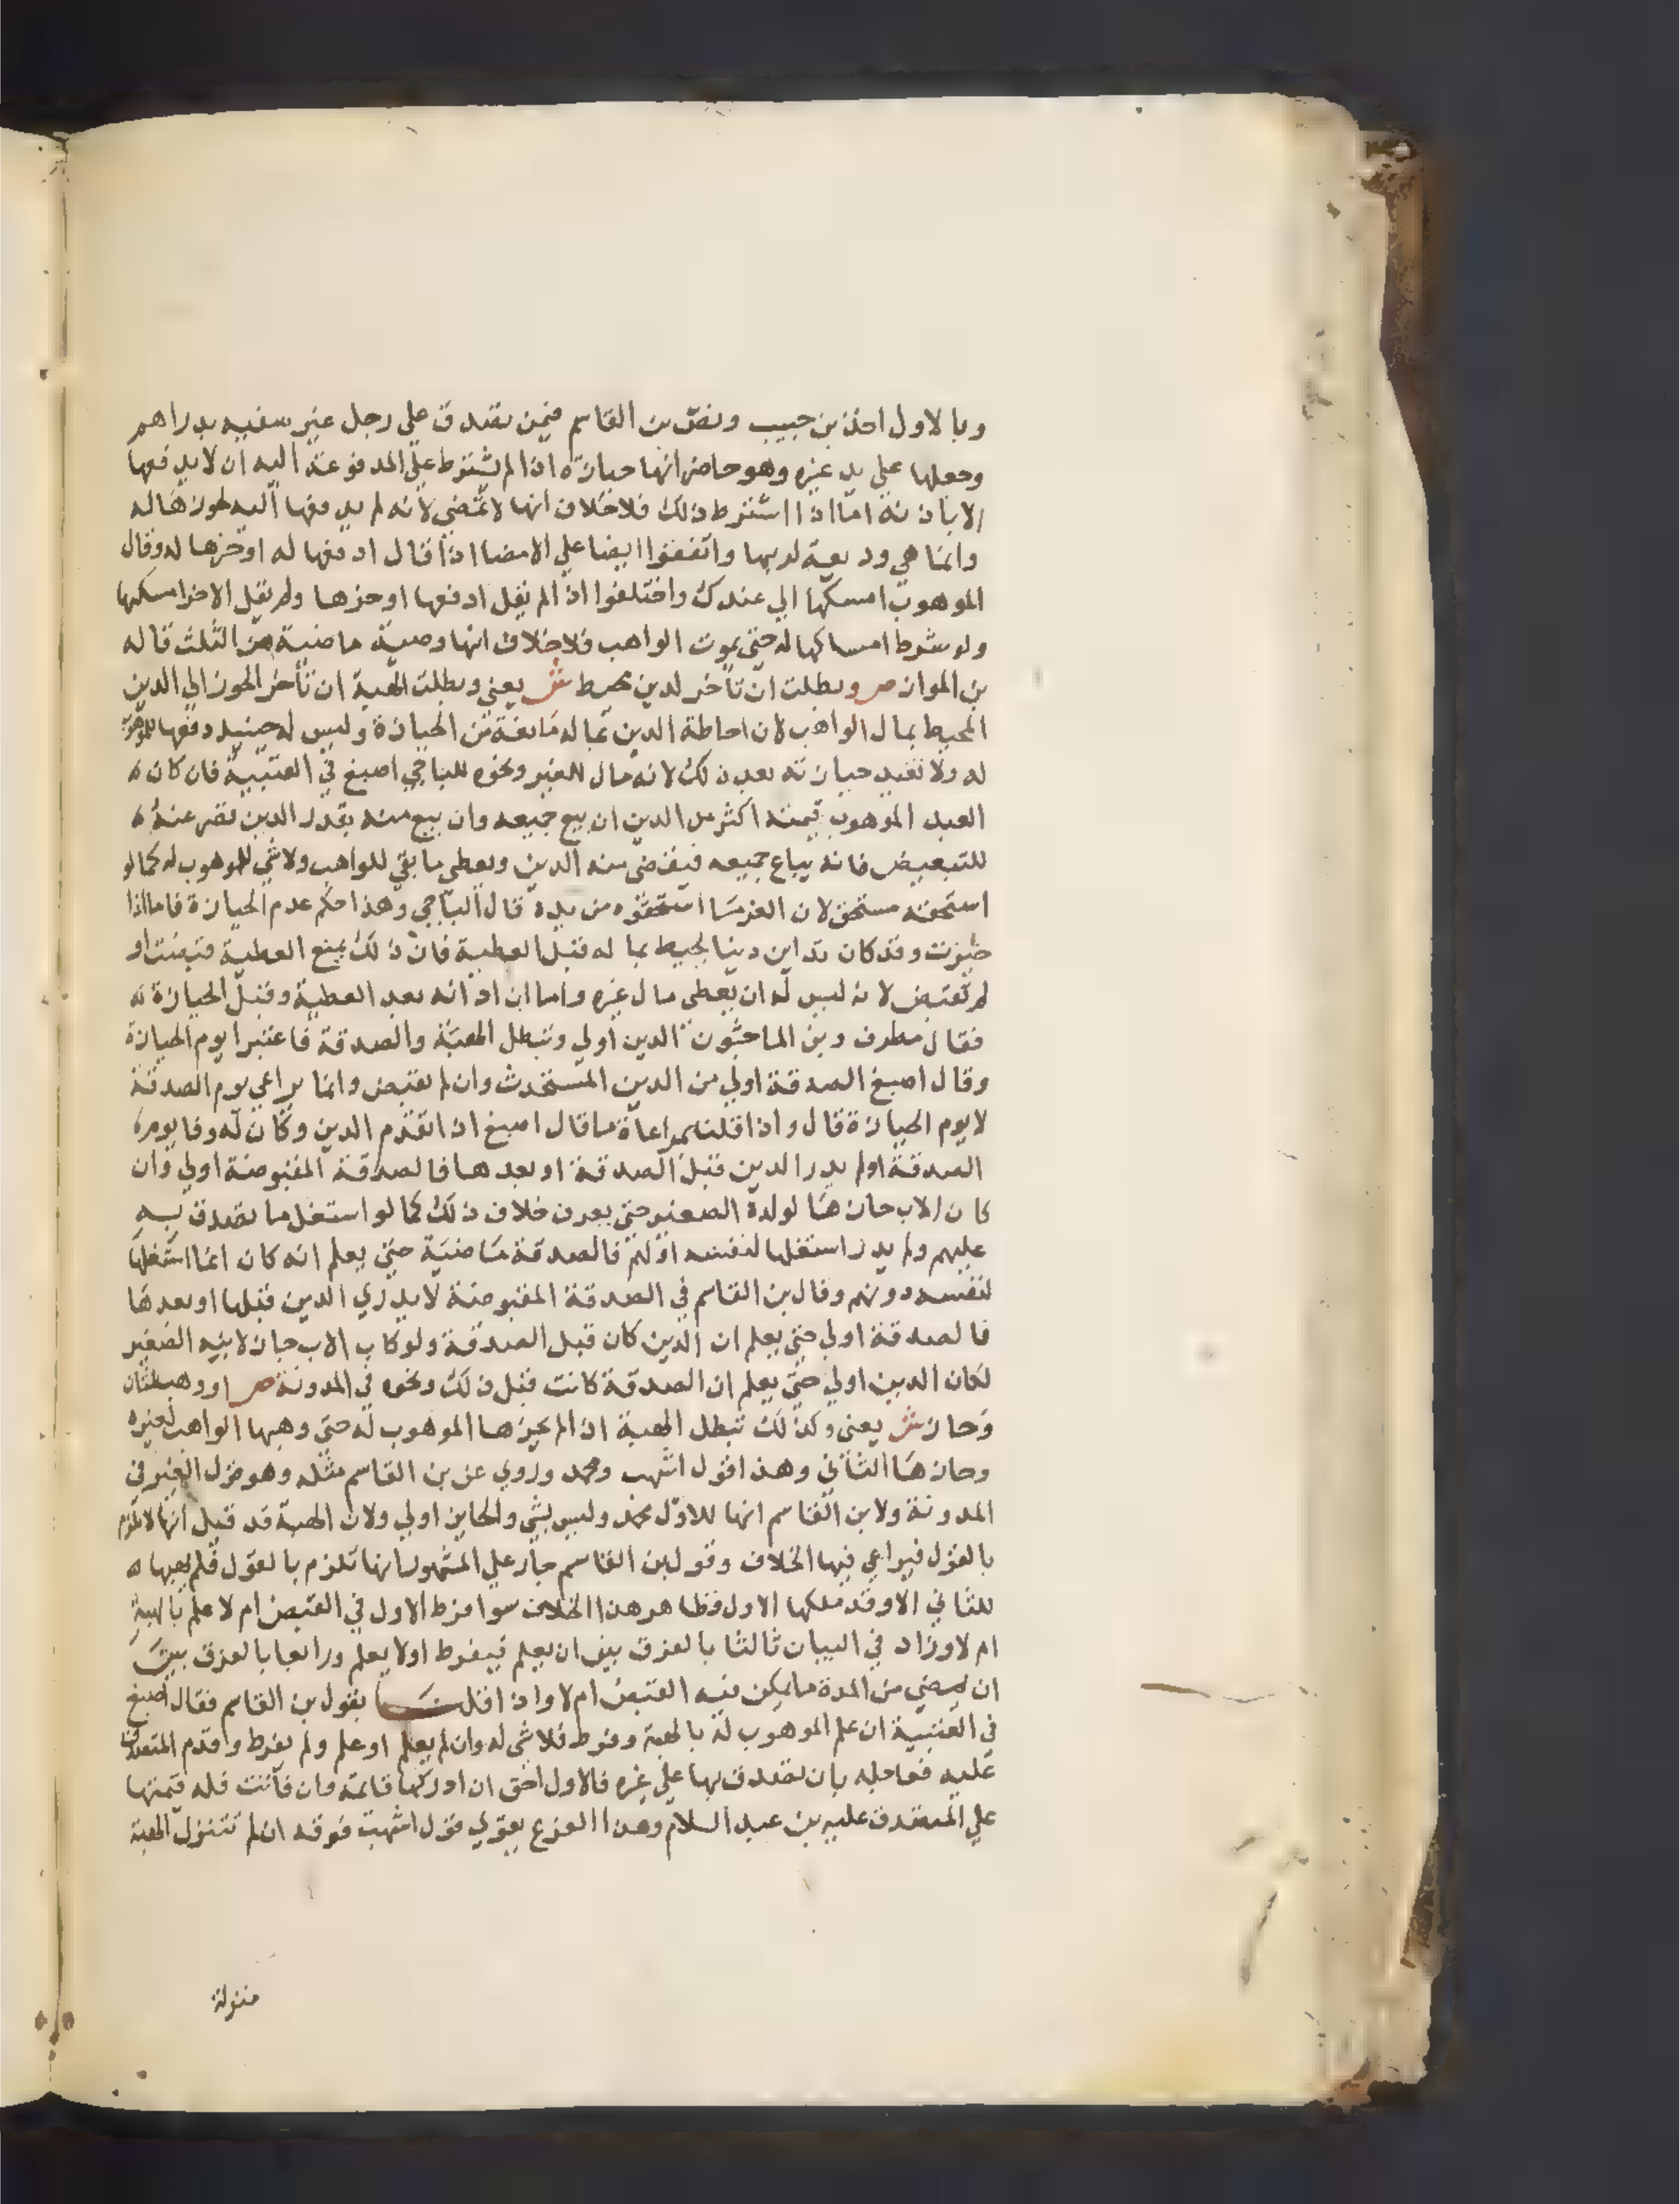 وبالاول اخذ بن حبيب ونص بن القاسم فيمن تصدق علي رجل غير سفيه بدراهم
وجعلها علي يد غيره وهو حاضر انها حيازة اذا لم يشترط علي المدفوعة اليه ان لا يدفعها
الا باذنه اما اذا اشترط ذلك فلا خلاف انها لا تمضي لانه لم يدفعها اليه لحوزها له
وانما هي وديعة لربها واتفقوا ايضا علي الامضا اذا قال ادفعها له او حزها له وقال
الموهوب امسكها الي عندك واختلفوا اذا لم يقل ادفعها او حزها ولم يقل الاخر امسكها
ولو شرط امساكها له حتي يموت الواهب فلا خلاف انها وصية ماضية من الثلث قاله
بن المواز ص وبطلت ان تاخر لدين محيط ش يعني وبطلت الهبة ان تأخر الحوز الي الدين
المحيط بمال الواهب لان احاطة الدين بماله مانعة من الحيازة وليس له حينيذ دفعها للموهوب
له ولا تفيد حيازته بعد ذلك لانه مال للغير ونحوه للباجي اصبغ في العتبية فان كان
العبد الموهوب قيمته اكثر من الدين ان بيع جميعه وان بيع منه بقدر الدين نقص عنه
للتبعيض فانه يباع جميعه فيقضي منه الدين ويعطي ما بقي للواهب ولا شي للموهوب له كما لو
استحقه مستحق لان الغرما استحقوه من يده قال الباجي وهذا حكم عدم الحيازة فاما اذا
حيزت وقد كان تداين دينا يحيط بماله قبل العطية فان ذلك يمنع العطية قبضت او
لم تقبض لانه ليس له ان يعطي مال غيره واما ان ادانه بعد العطية وقبل الحيازة
فقال مطرف وبن الماجشون الدين اولي وتبطل الهبة والصدقة فاعتبرا يوم الحيازة
وقال اصبغ الصدقة اولي من الدين المستحدث وان لم تقبض وانما يراعي يوم الصدقة
لا يوم الحيازة قال واذا قلنا بمراعاة ما قال اصبغ اذا تقدم الدين وكان له وفا يوم
الصدقة او لم يدر الدين قبل الصدقة او بعدها فالصدقة المقبوضة اولي وان
كان الاب حازها لولده الصغير حتي يعرف خلاف ذلك كما لو استغل ما تصدق به
عليهم ولم يدر استغلها لنفسه او لهم فالصدقة ماضية حتي يعلم انه كان انما استغلها
لنفسه دونهم وقال بن القاسم في الصدقة المقبوضة لا يدري الدين قبلها او بعدها
فالصدقة اولي حتي يعلم ان الدين كان قبل الصدقة ولو كان الاب حاز لابنه الصغير
لكان الدين اولي حتي يعلم ان الصدقة كانت قبل ذلك ونحوه في المدونة ص او وهب لثان
وحاز ش يعني وكذلك تبطل الهبة اذا لم يحزها الموهوب له حتي وهبها الواهب لغيره
وحازها الثاني وهذا قول اشهب ومحمد وروي عن بن القاسم مثله وهو قول الغير في
المدونة ولابن القاسم انها للاول محمد وليس بشي والحايز اولي ولان الهبة قد قيل انها لا تلزم
بالقول فيراعي فيها الخلاف وقول بن القاسم جار علي المشهور انها تلزم بالقول فلم يهبها
للثاني الا وقد ملكها الاول فظاهر هذا الخلاف سوا فرط الاول في القبض ام لا علم بالهبة
ام لا وزاد في البيان ثالثا بالفرق بين ان يعلم فيفرط او لا يعلم ورابعا بالفرق بين
ان يمضي من المدة ما يمكن فيه القبض ام لا واذا قلنا بقول بن القاسم فقال اصبغ
في العتبية ان علم الموهوب له بالهبة وفرط فلا شي له وان لم يعلم او علم ولم يفرط واقدم المتصدق
عليه فعاجله بان تصدق بها علي غيره فالاول احق ان ادركها قائمة وان فاتت فله قيمتها
علي المتصدق عليه بن عبد السلام وهذا الفرع يقوي قول اشهب فوقه ان لم تتنزل الهبة
منزلة